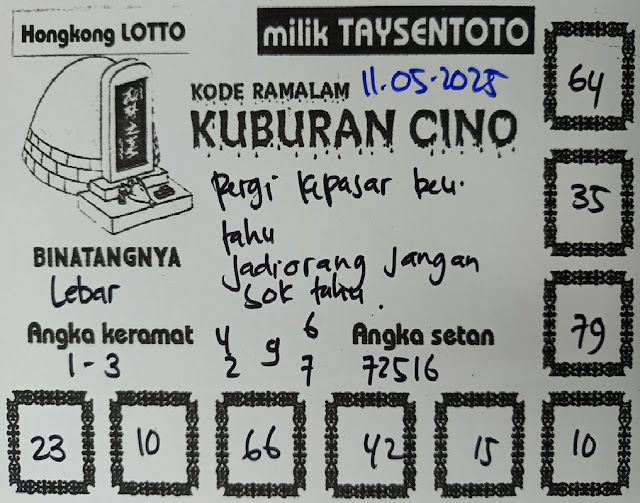 Hongkong LOTTO
milik TAYSENTOTO
KODE RAMALAM 11.05.2025
KUBURAN CINO
Pergi kepasar beli
tahu
Jadiorang Jangan
Sok tahu.
BINATANGNYA
Lebar
Angka keramat
1-3
4 9 6
2 7
Angka setan
72516
64
35
79
23 10 66 42 15 10